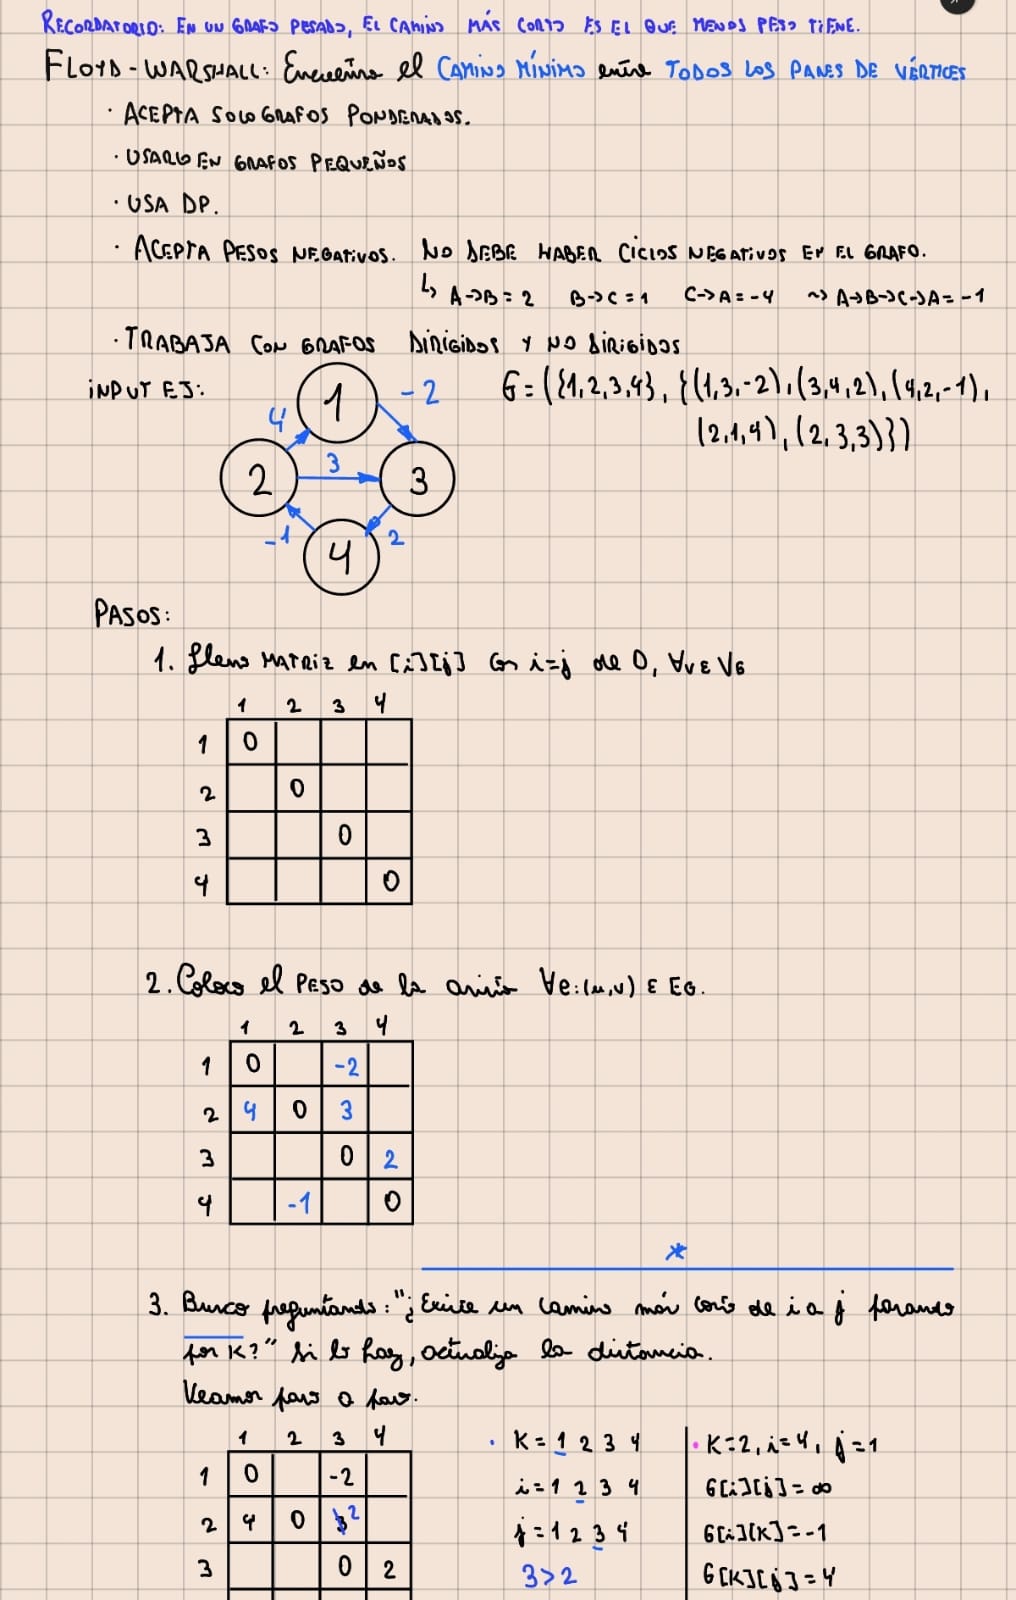 RECORDATORIO: EN UN GRAFO PESADO, EL CAMINO MÁS CORTO ES EL QUE MENOS PESO TIENE.
FLOYD-WARSHALL: Encuentra el CAMINO MÍNIMO entre TODOS LOS PARES DE VÉRTICES
· ACEPTA SOLO GRAFOS PONDERADOS.
· USARLO EN GRAFOS PEQUEÑOS
· USA DP.
· ACEPTA PESOS NEGATIVOS. NO DEBE HABER CICLOS NEGATIVOS EN EL GRAFO.
↳ A->B = 2 B->C = 1 C->A = -4 ~> A->B->C->A = -1
· TRABAJA CON GRAFOS DIRIGIDOS Y NO DIRIGIDOS
INPUT EJ:
4 1 -2
2 3 3
-1 4 2
G = ({1,2,3,4}, {(1,3,-2), (3,4,2), (4,2,-1),
(2,1,4), (2,3,3)})
PASOS:
1. lleno MATRIZ en [i][j] con i=j de 0, ∀v ε VG
1 2 3 4
1 0
2 0
3 0
4 0
2. Coloco el PESO de la arista ∀e:(u,v) ε EG.
1 2 3 4
1 0 -2
2 4 0 3
3 0 2
4 -1 0
*
3. Busco preguntando: "¿Existe un camino más corto de i a j pasando
por K?" Si lo hay, actualizo la distancia.
Veamos paso a paso.
1 2 3 4
1 0 -2
2 4 0 3 2
3 0 2
· K = 1 2 3 4
i = 1 2 3 4
j = 1 2 3 4
3>2
· K=2, i=4, j=1
G[i][j] = ∞
G[i][K] = -1
G[K][j] = 4